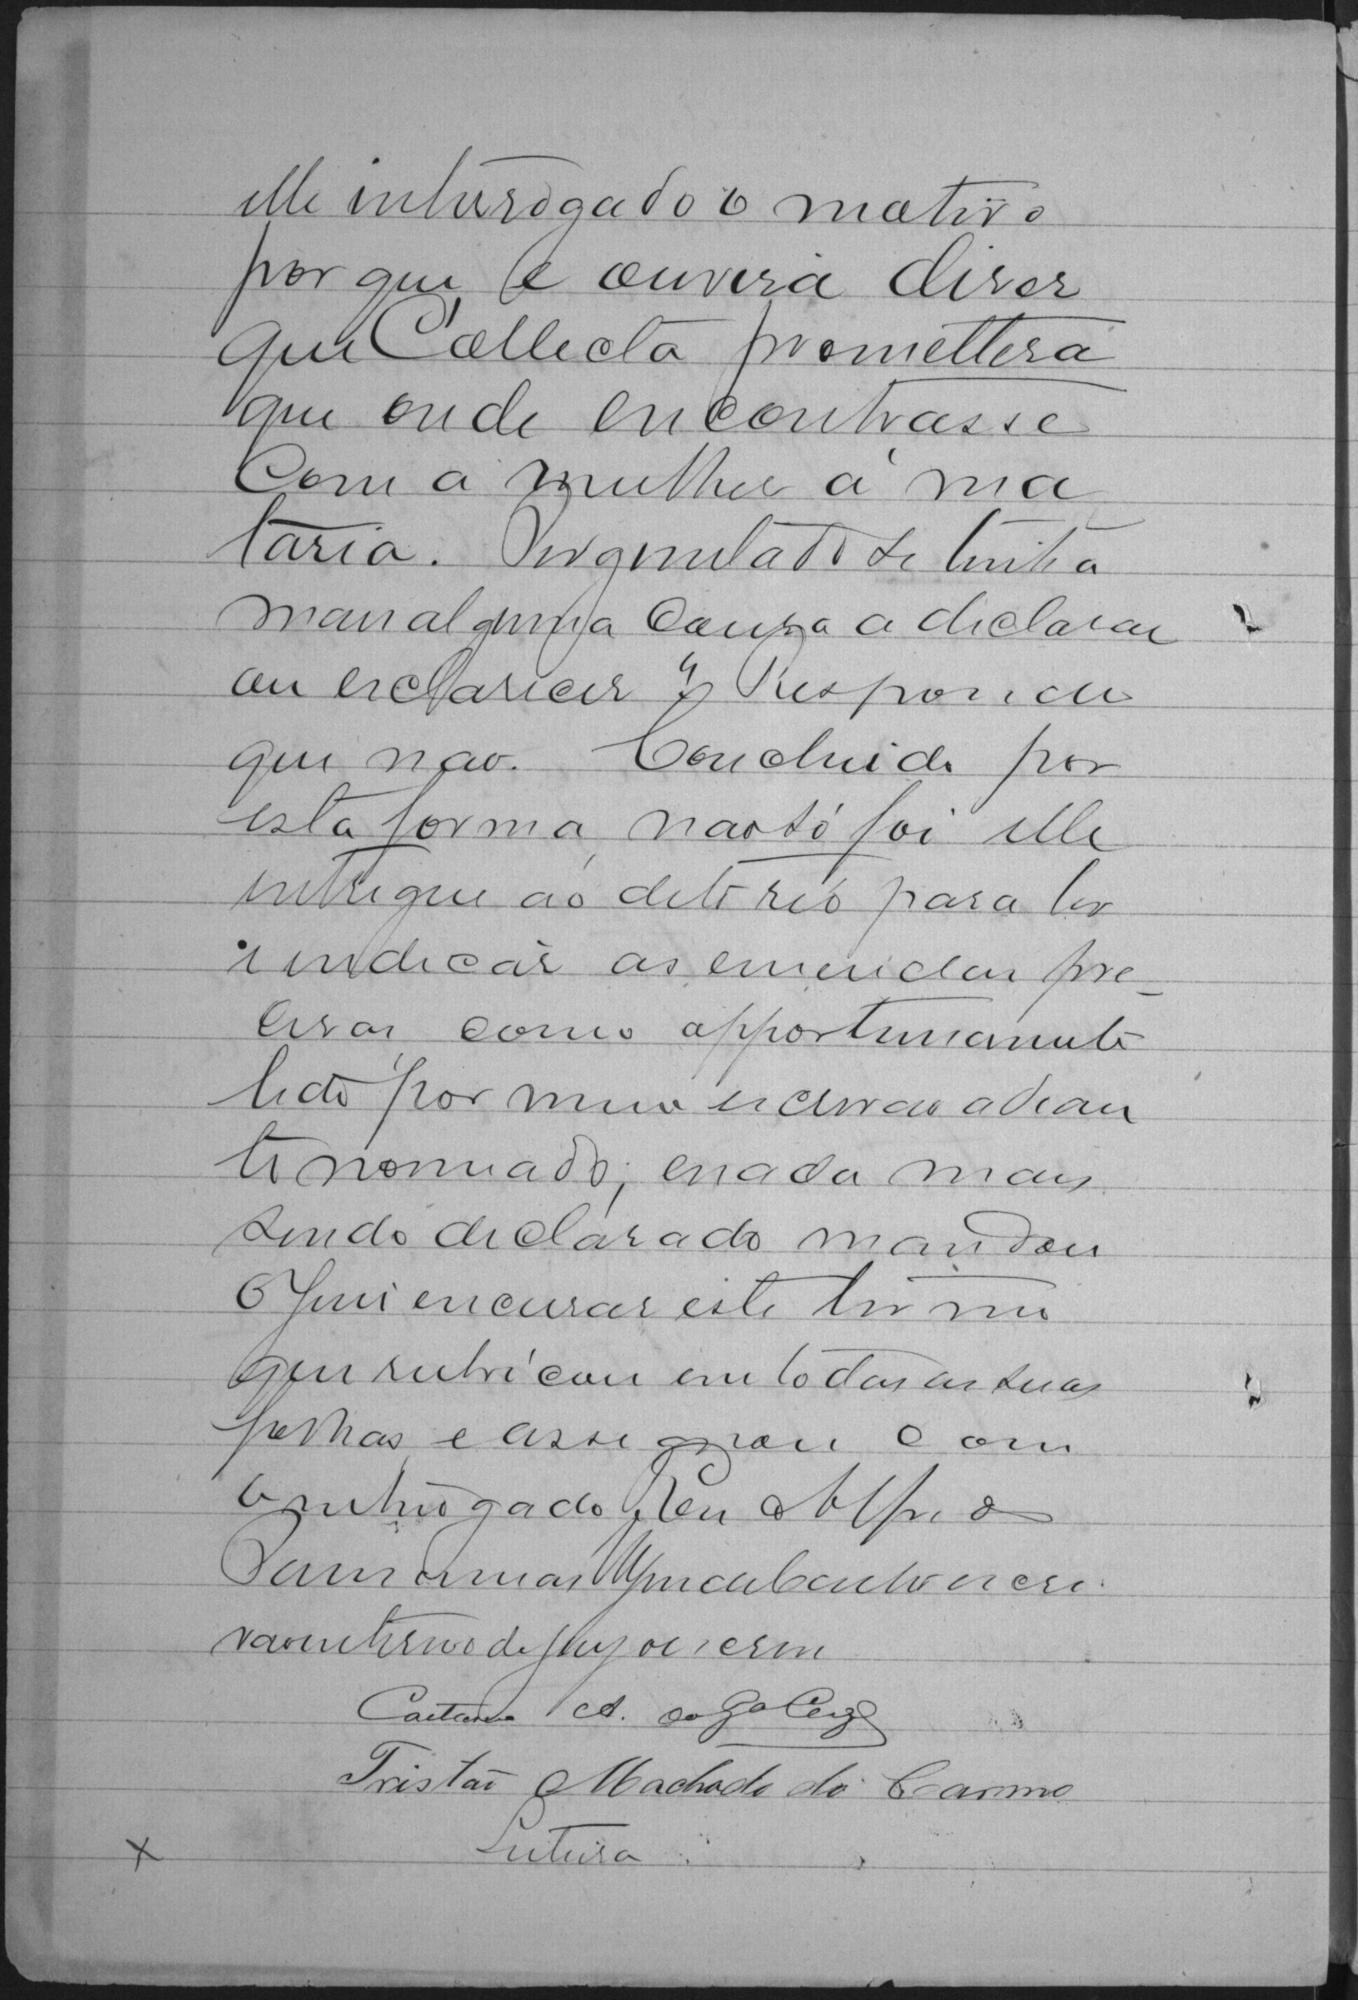 elle interrogado o motivo
por que e ouvira diser
que Collecta promettera
que onde encontrasse
com a mulher a ma
taria. Perguntado se tinha
mais alguma cousa a declarar
ou esclarecer? Respondeu
que não. Concluido por
esta forma, não só foi elle
entregue ao dito réo para ler
e indicar as emendas pre-
cisas como opportunamente
lido por mim escrivão adian
te nomeado; e nada mais
sendo declarado mandou
o Juis encerrar este termo
que rubricou em todas as suas
folhas e assignou com
o interrogado. Eu Alfredo
escri
vão interino do Jury o escrevi
Caetano A. da
Tristão Machado do Carmo
Leitura
X